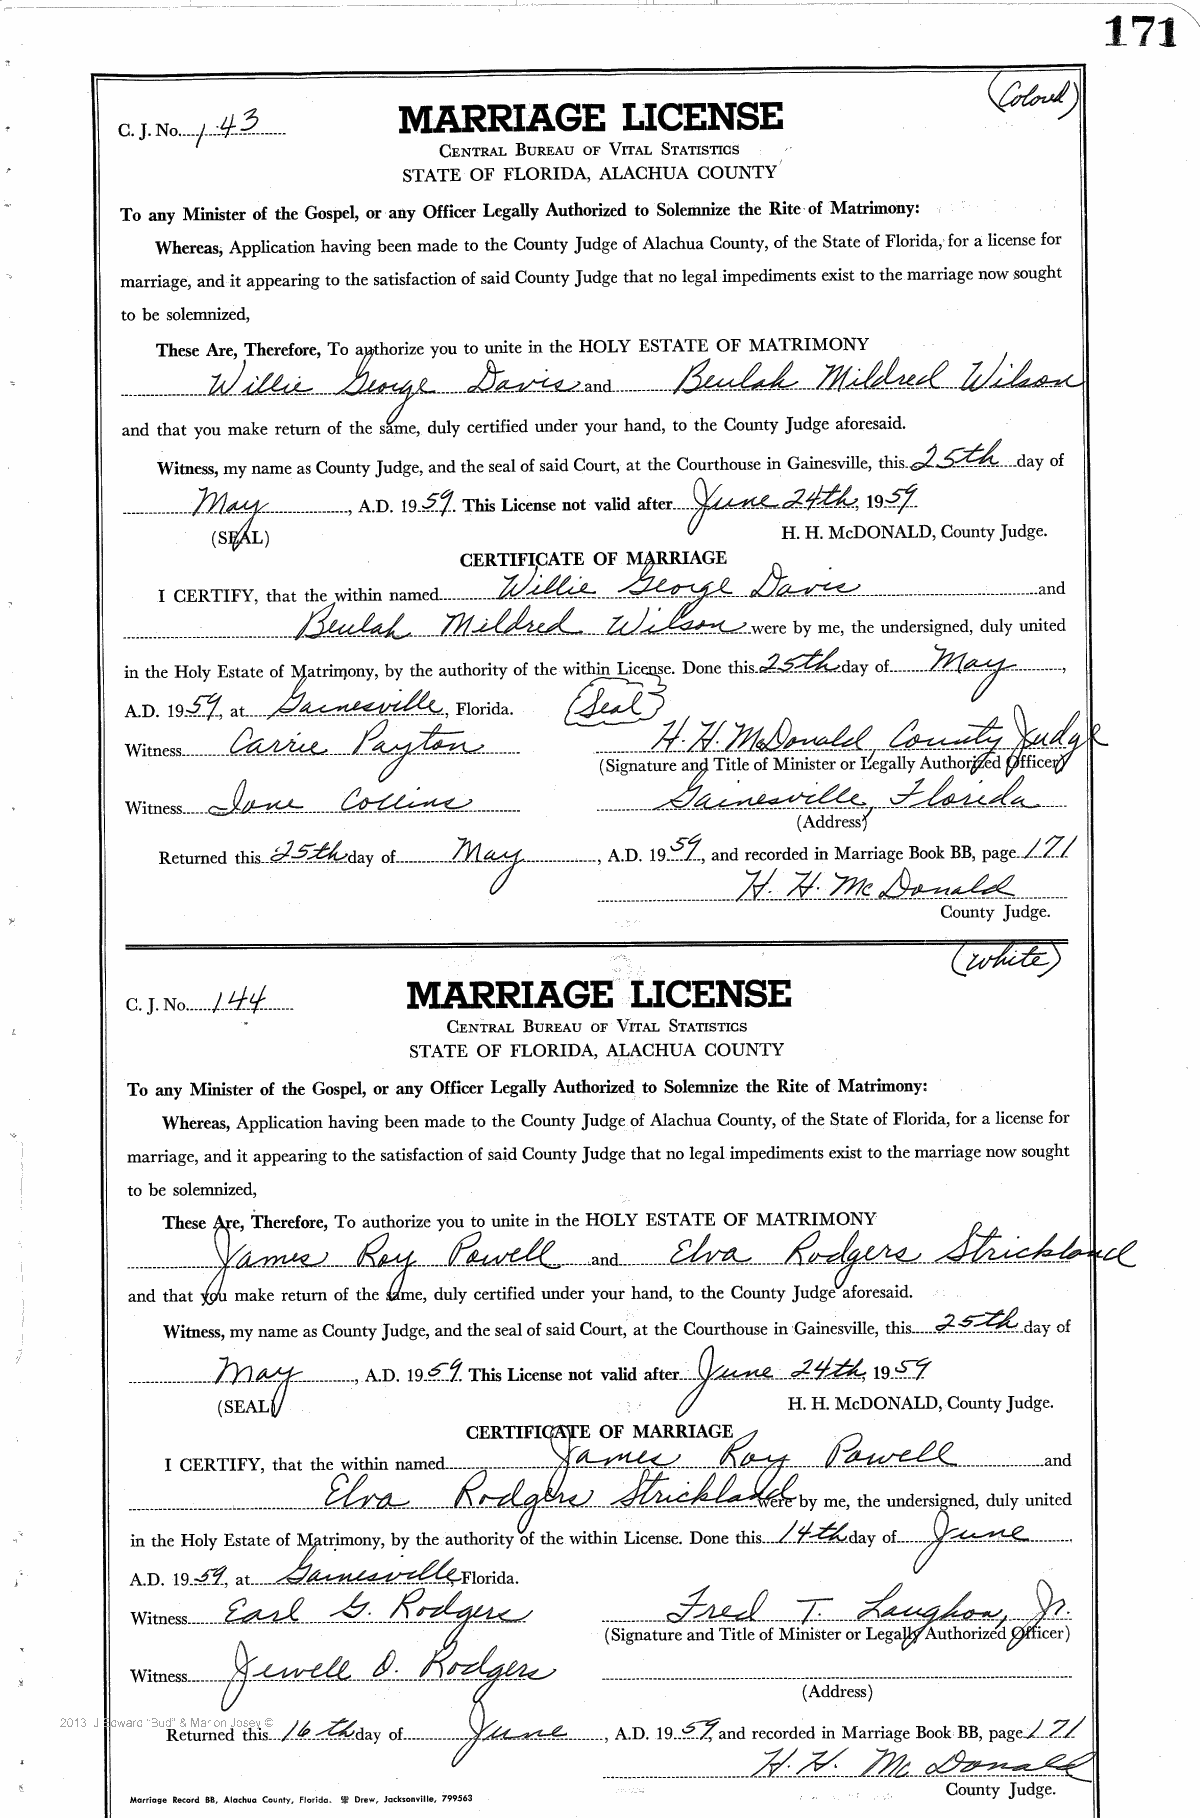 171
(Colored)
C. J. No. 143
MARRIAGE LICENSE
CENTRAL BUREAU OF VITAL STATISTICS
STATE OF FLORIDA, ALACHUA COUNTY
To any Minister of the Gospel, or any Officer Legally Authorized to Solemnize the Rite of Matrimony:
Whereas, Application having been made to the County Judge of Alachua County, of the State of Florida, for a license for
marriage, and it appearing to the satisfaction of said County Judge that no legal impediments exist to the marriage now sought
to be solemnized,
These Are, Therefore, To authorize you to unite in the HOLY ESTATE OF MATRIMONY
Willie George Davis and Beulah Mildred Wilson
and that you make return of the same, duly certified under your hand, to the County Judge aforesaid.
Witness, my name as County Judge, and the seal of said Court, at the Courthouse in Gainesville, this 25th day of
May, A.D. 1959. This License not valid after June 24th, 1959
(SEAL) H. H. McDONALD, County Judge.
CERTIFICATE OF MARRIAGE
I CERTIFY, that the within named Willie George Davis and
Beulah Mildred Wilson were by me, the undersigned, duly united
in the Holy Estate of Matrimony, by the authority of the within License. Done this 25th day of May,
A.D. 1959, at Gainesville, Florida. (Seal)
Witness Carrie Payton H. H. McDonald, County Judge
(Signature and Title of Minister or Legally Authorized Officer)
Witness Jane Collins Gainesville, Florida
(Address)
Returned this 25th day of May, A.D. 1959, and recorded in Marriage Book BB, page 171
H. H. McDonald
County Judge.
(White)
C. J. No. 144
MARRIAGE LICENSE
CENTRAL BUREAU OF VITAL STATISTICS
STATE OF FLORIDA, ALACHUA COUNTY
To any Minister of the Gospel, or any Officer Legally Authorized to Solemnize the Rite of Matrimony:
Whereas, Application having been made to the County Judge of Alachua County, of the State of Florida, for a license for
marriage, and it appearing to the satisfaction of said County Judge that no legal impediments exist to the marriage now sought
to be solemnized,
These Are, Therefore, To authorize you to unite in the HOLY ESTATE OF MATRIMONY
James Roy Powell and Elva Rodgers Strickland
and that you make return of the same, duly certified under your hand, to the County Judge aforesaid.
Witness, my name as County Judge, and the seal of said Court, at the Courthouse in Gainesville, this 25th day of
May, A.D. 1959. This License not valid after June 24th, 1959
(SEAL) H. H. McDONALD, County Judge.
CERTIFICATE OF MARRIAGE
I CERTIFY, that the within named James Roy Powell and
Elva Rodgers Strickland were by me, the undersigned, duly united
in the Holy Estate of Matrimony, by the authority of the within License. Done this 14th day of June
A.D. 1959, at Gainesville, Florida.
Witness Earl G. Rodgers Fred T. Laughon, Jr.
(Signature and Title of Minister or Legally Authorized Officer)
Witness Jewell O. Rodgers
(Address)
2013 J Edward "Bud" & Marion Josey ©
Returned this 16th day of June, A.D. 1959, and recorded in Marriage Book BB, page 171
H. H. McDonald
County Judge.
Marriage Record BB, Alachua County, Florida. Drew, Jacksonville, 799563